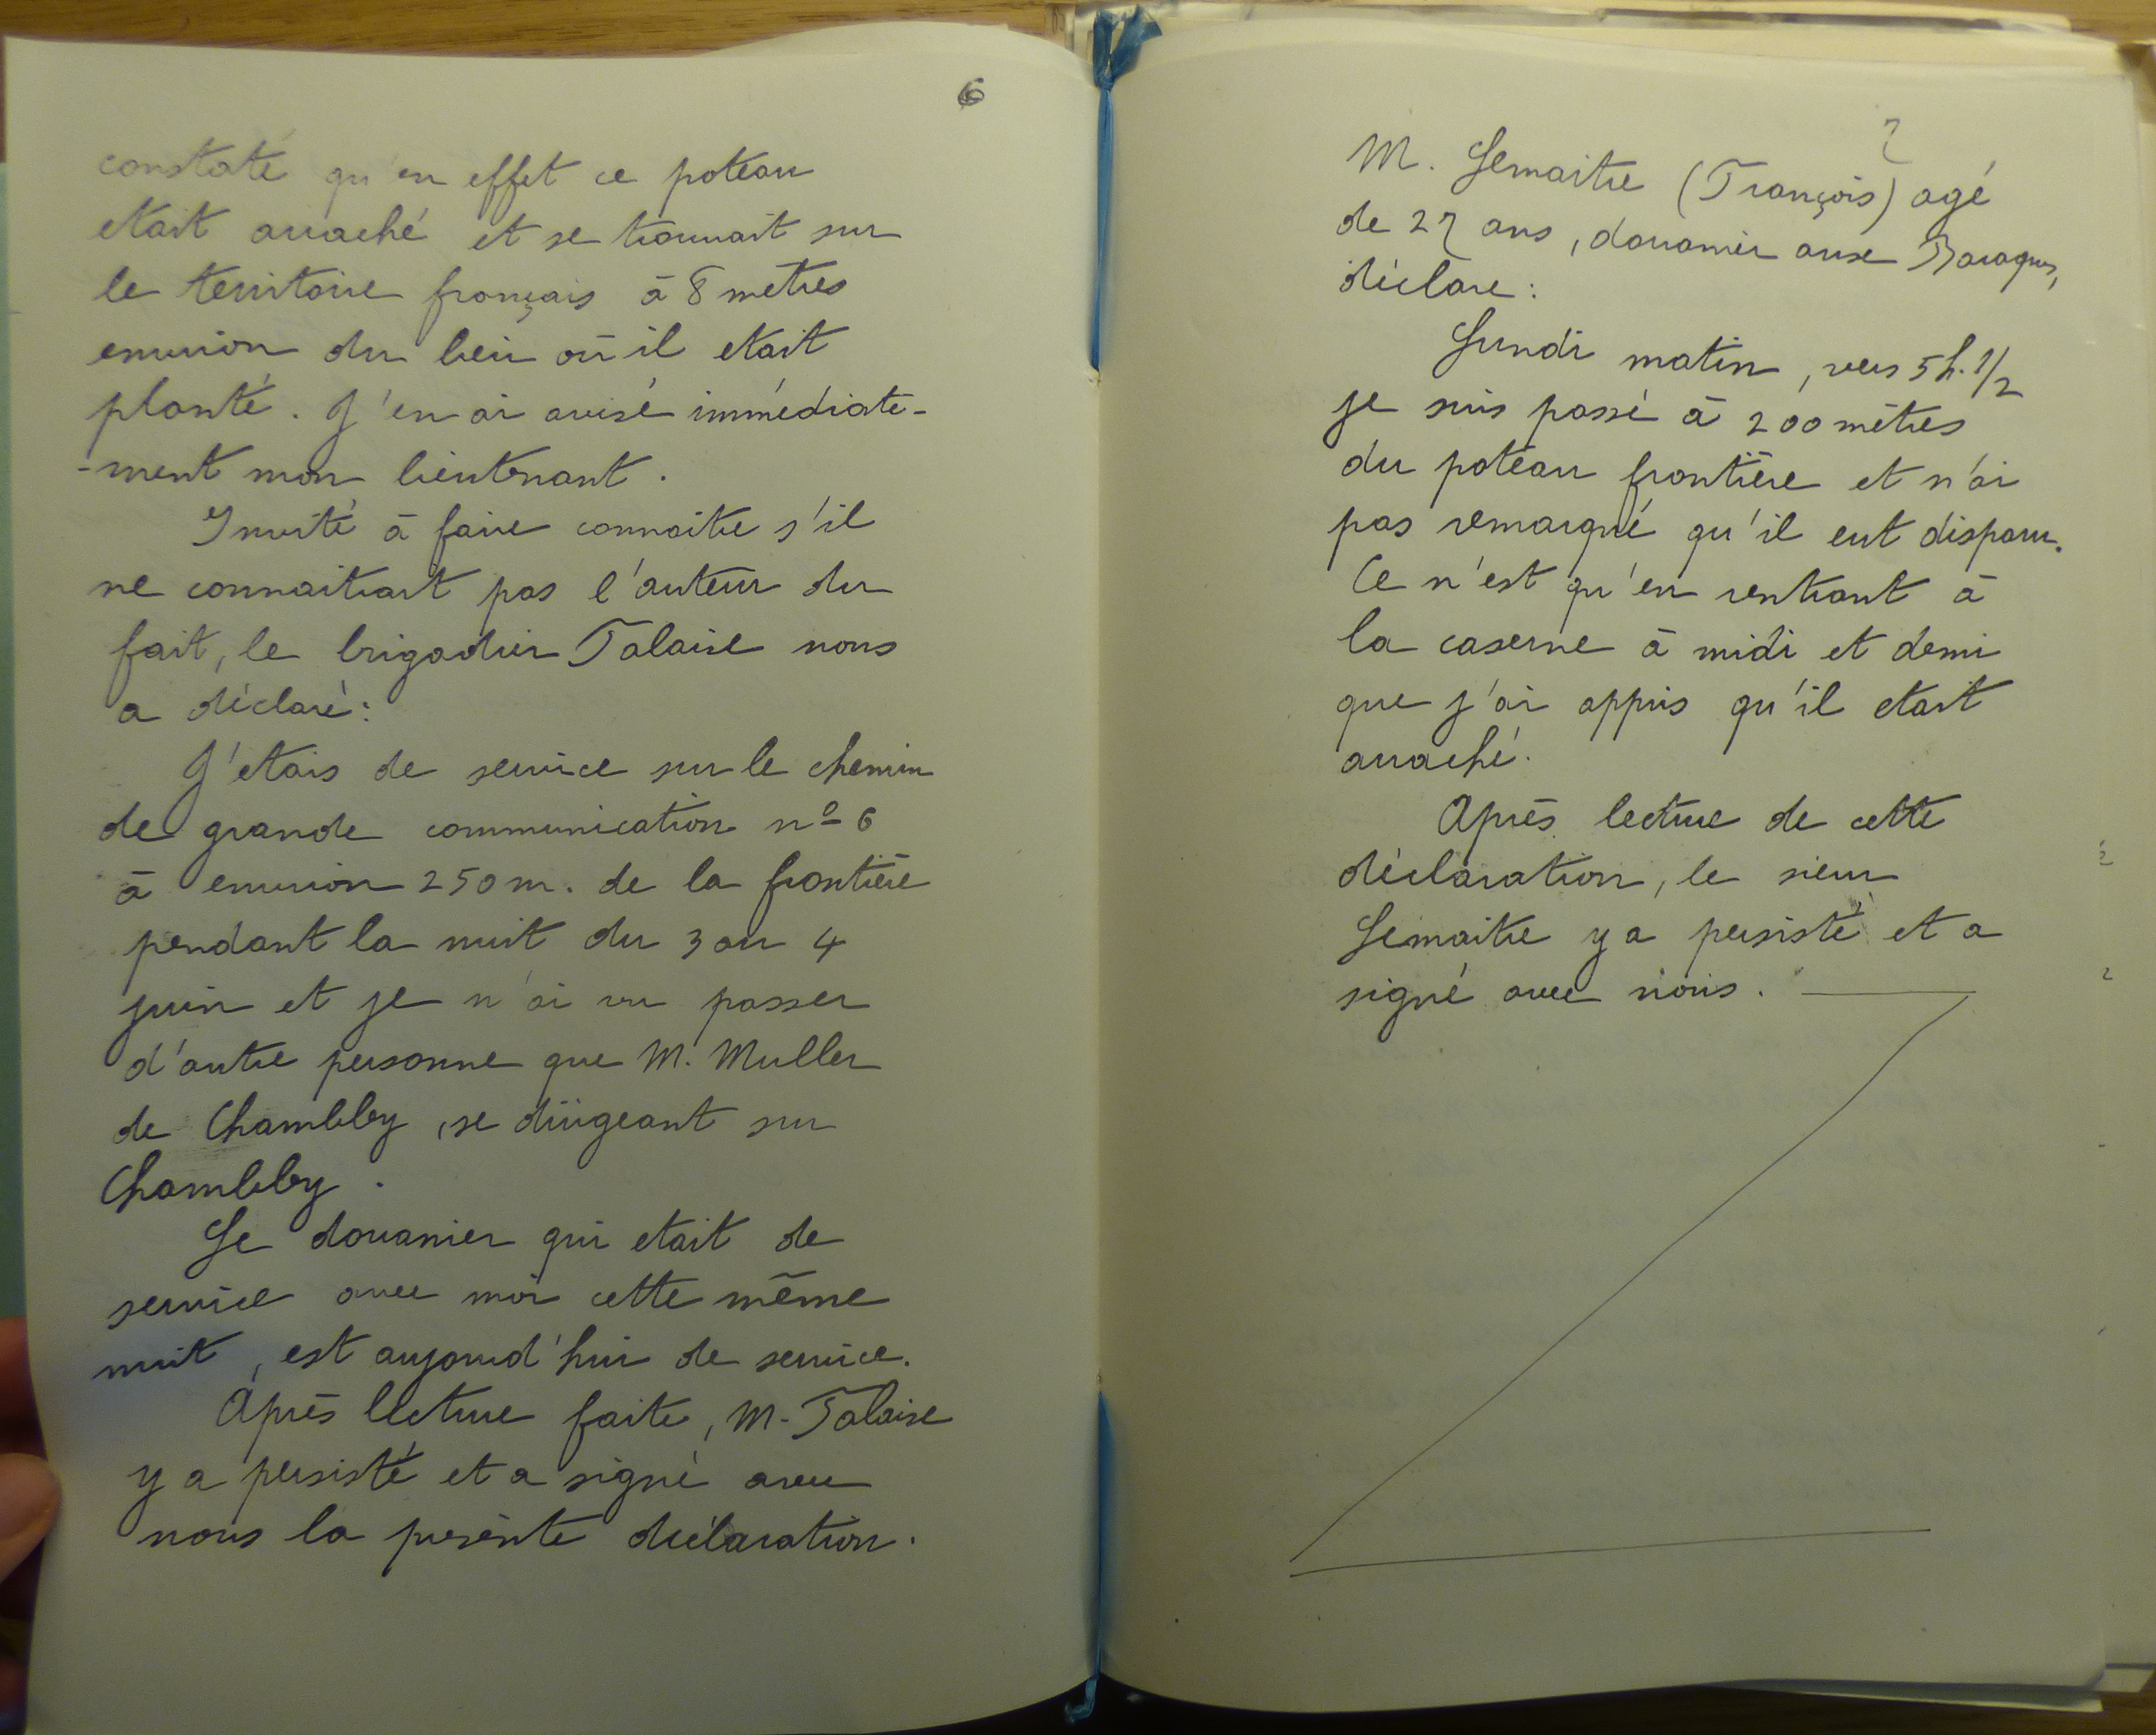 6
constaté qu'en effet ce poteau
etait arraché et se trouvait sur
le territoire français à 8 metres
environ du lieu où il etait
planté. J'en ai avisé immédiate-
-ment mon lieutenant.
Invité à faire connaitre s'il
ne connaitrait pas l'auteur du
fait, le brigadier Talaise nous
a déclaré:
J'etais de service sur le chemin
de grande communication nº 6
à environ 250 m. de la frontière
pendant la nuit du 3 au 4
juin et je n'ai vu passer
d'autre personne que M. Muller
de Chambley, se dirigeant sur
Chambley.
Le douanier qui etait de
service avec moi cette même
nuit, est aujourd'hui de service.
Après lecture faite, M. Talaise
y a persisté et a signé avec
nous la présente déclaration.
7
M. Lemaitre (François) agé
de 27 ans, douanier aux Baraques,
déclare:
Lundi matin, vers 5 h. 1/2
je suis passé à 200 mètres
du poteau frontière et n'ai
pas remarqué qu'il eut disparu.
Ce n'est qu'en rentrant à
la caserne à midi et demi
que j'ai appris qu'il etait
arraché.
Après lecture de cette
déclaration, le sieur
Lemaitre y a persisté et a
signé avec nous.